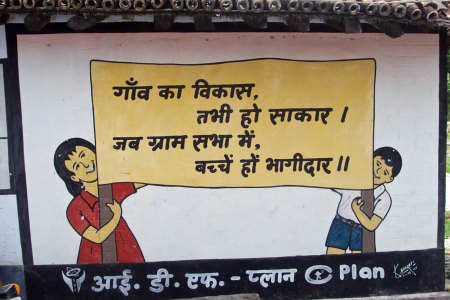 गाँव का विकास,
तभी हो साकार ।
जब ग्राम सभा में,
बच्चें हों भागीदार ॥
आई. डी. एफ. - प्लान Plan